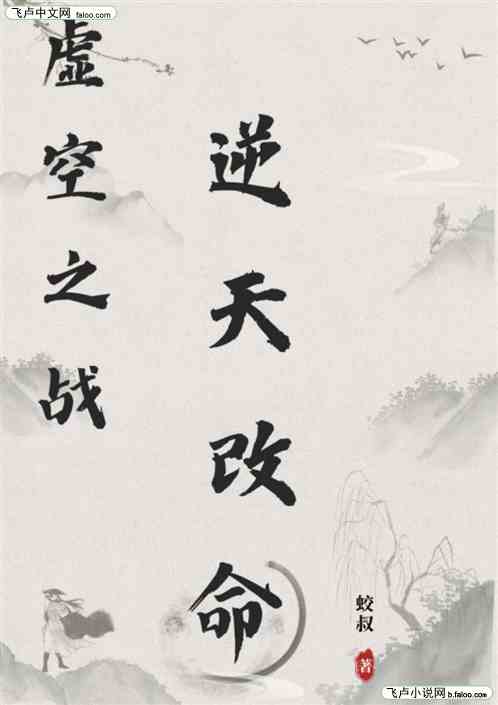 飞卢中文网 faloo.com
虚空之战
逆天改命
蛟叔
著
飞卢小说网 b.faloo.com